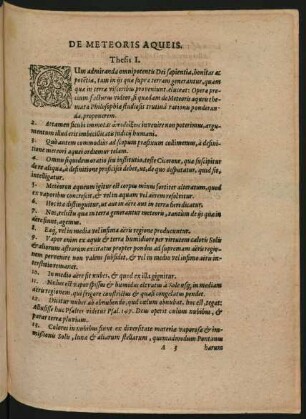 DE METEORIS AQUEIS.
Thesis I.
CUm admiranda omnipotentis Dei sapientia, bonitas ac
potẽtia, tam in ijs quæ supra terram generantur, quam
quæ in terræ visceribus proveniunt, eluceat: Opera
precium facturus videor, si quædam de Meteoris aqueis the-
mata Philosophiæ studiosis trutinâ rationis ponderan-
da, proponerem.
2. Attamen si invenire non poterimus, argu-
mentum illud erit imbecillitatis judicij humani.
3. Quò autem commodius ad scopum præfixum collimem, à definitione
meteori aquei ordinem telam.
4. Omnis siquidem à ratione institutio, teste Cicerone, quæ suscipitur
de re aliqua, à definitione proficisci debet, ut, de quo disputatur, quid sit,
intelligatur.
5. Meteoron aqueum igitur est corpus minus sinceriter alteratum, quod
ex vaporibus concrescit, & vel in aquam vel aërem resolvitur.
6. Hocita distinguitur, ut aut in aëre aut in terra sordicatur.
7. Nos, relictis quæ in terra generantur meteoris, tantùm de ijs quæ in aëre
sunt, agemus.
8. Eaq, vel in media vel infima aëris regione producuntur.
9. Vapor enim ex aquis & terra humidiore per virtutem caloris Solis
& aliorum astrorum excitatus propter pondus ad supremam aëris regio-
nem pervenire non valens, subsistit, & vel in media vel infima aëris in-
terstitio remanet.
10. In media aëre fit nubes, & quod ex illa gignitur.
11. Nubes est vapor spissus & humidus elevatus à Sole usq; in mediam
aëris regionem, quò frigore constrictus & quasi congelatus pendet.
12. Dicitur nubes ab obnubendo, quòd cœlum obnubat, hoc est, tegat:
Astulisse huc Psaltes videtur Psal. 147. Deus operit cœlum nubibus, &
parat terræ pluviam.
13. Colores in nubibus fiunt ex diversitate materiæ vaporosæ & im-
missione Solis, Lunæ & aliarum stellarum, quemadmodum Pontanus
A 3 harum